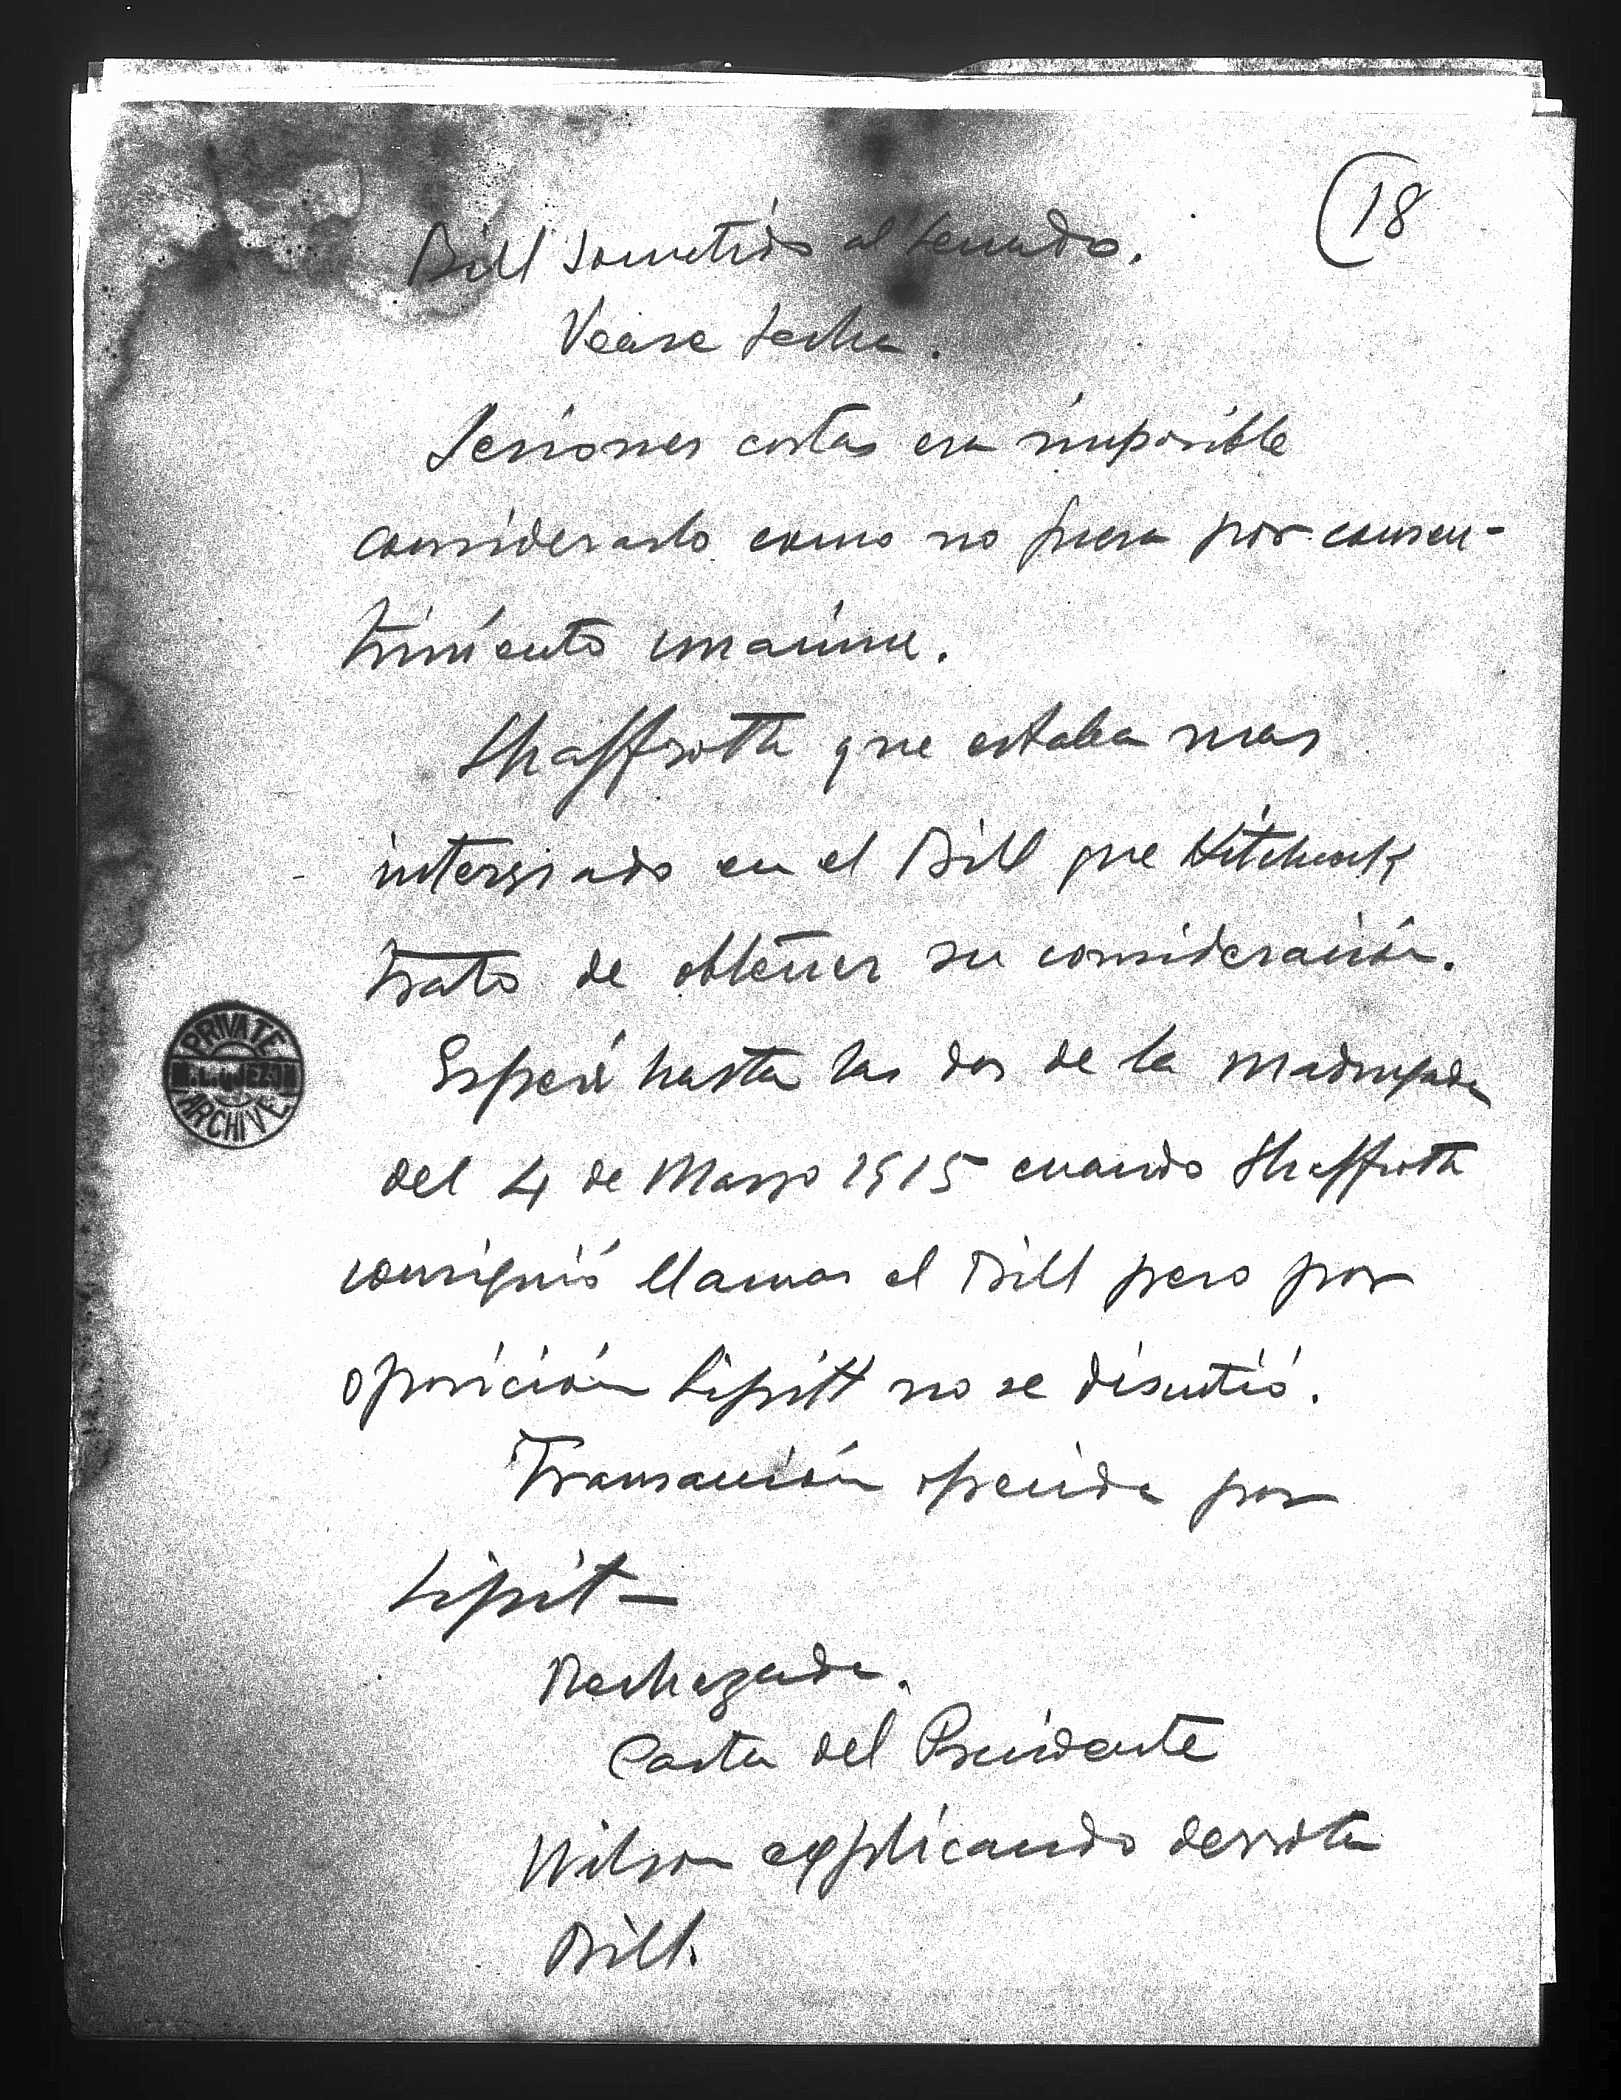 18
Bill sometido al Senado.
Vease fecha.
Sesiones cortas era imposible
considerarlo como no fuera por consen-
timiento unanime.
Shaffroth que estaba mas
interesado en el Bill que Hitchcock
trato de obtener su consideración.
Esperé hasta las dos de la madrugada
del 4 de Marzo 1915 cuando Shaffroth
consiguió llamar el Bill pero por
oposición Lipitt no se discutió.
Transacción ofrecida por
Lipit —
Rechazada.
Carta del Presidente
Wilson explicando derrota
Bill.
PRIVATE
ARCHIVE